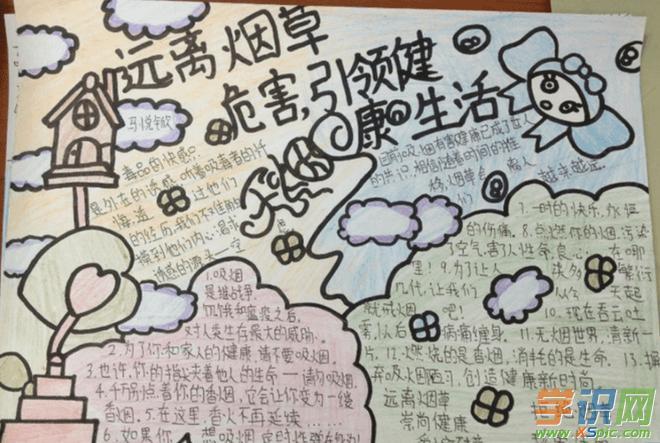 远离烟草
危害,引领健
康生活
马悦欣
毒品的快感只
是外在的诱惑,听着吸毒者的忏
悔,过他们
的经历,我们不难触
摸到他们内心渴求
诱惑的源头一空
目前吸烟有害健康已成了世人
的共识,相信随着时间的推
移,烟草会离人
们越来越远.
1.吸烟
是继战争、
饥饿和瘟疫之后,
对人类生存最大的威胁.
2.为了你和家人的健康,请不要吸烟.
3.也许,你的指边夹着他人的生命——请勿吸烟.
4.千万别点着你的香烟,它会让你变为一缕
香烟.5.在这里,香火不再延续.
6.如果你想吸烟
7.一时的快乐,永恒
的伤痛.8.点燃你的烟,污染
了空气,害了人性命,良心在哪
里!9.为了让人类多繁衍
几代,让我们从今天起
就戒烟吧!10.现在吞云吐
雾,以后病痛缠身.11.无烟世界,清新一
片.12.燃烧的是香烟,消耗的是生命.13.摒
弃吸烟陋习,创造健康新时尚.
远离烟草
崇尚健康
学识网
www.XSpic.com